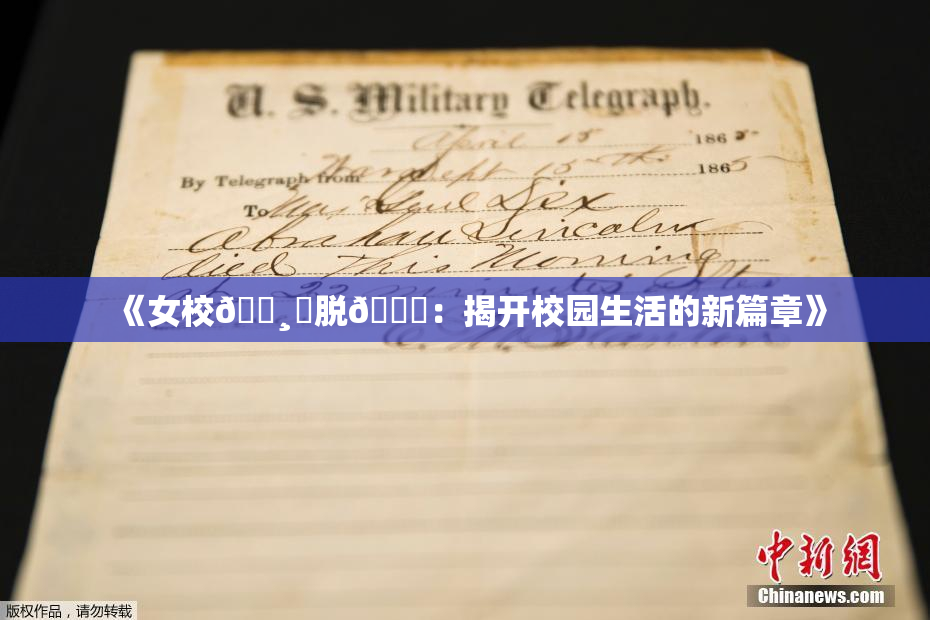 U. S. Military Telegraph.
April 15 1865
By Telegraph from War Dept 15th 1865
To Maj Genl Dix
Abraham Lincoln
died This Morning
at 22 minutes after
《女校ð¸脱ð：揭开校园生活的新篇章》
中新網
Chinanews.com
版权作品，请勿转载